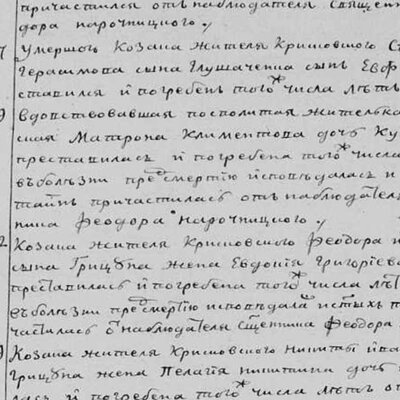 причастился отъ наблюдателя Священ
дора нарочницкого./
7 Умершого Козака жителя Крисовского С
герасимова сына Глушаченка сынъ Евф
ставился и погребенъ того ж числа лѣтъ
9 вдовствовавшая посполитая жителька
ская Матрона Климентова дочь Ку
преставилась и погребена того ж числа
въ болѣзни пред смертию исповѣдалась и
таинъ причастилась отъ наблюдателя
ника Феодора нарочницкого./
2 Козака жителя Крисовского Феодора и
сына Грицуна жена Евдокия Григориева
преставилась и погребена того ж числа лѣт
въ болѣзни пред смертию исповѣдала и стыхъ т
частилась о наблюдателя Сщенника Феодора
9 Козака жителя Крисовского Никиты ива
Грицуна жена Пелагия никитина дочь
лась и погребена того ж числа лѣтъ от